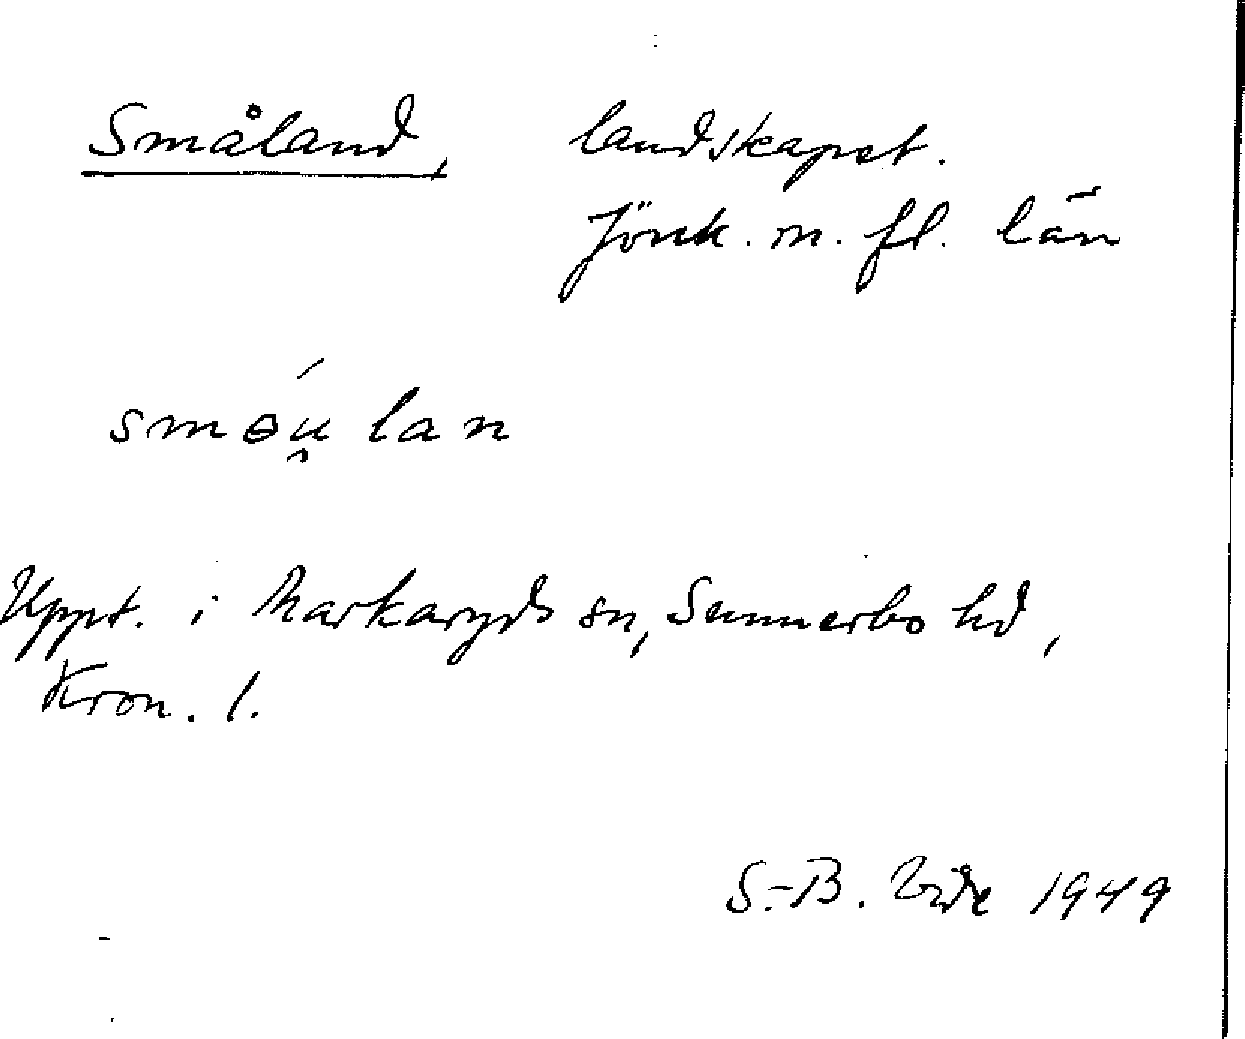 Småland, landskapet.
Jönk. m. fl. län
smɵú̯lan
Uppt. i Markaryds sn, Sunnerbo hd,
Kron. l.
S.-B. Vide 1949